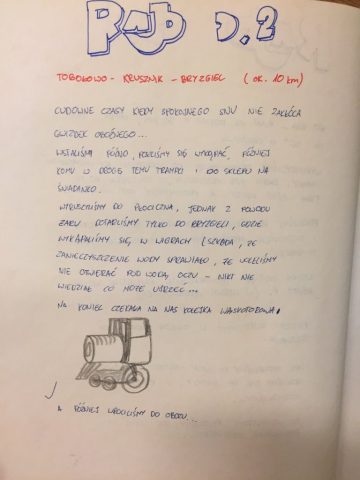 Rajd D.2
TOBOŁOWO - KRUSZNIK - BRYZGIEL (OK. 10 km)
CUDOWNE CZASY KIEDY SPOKOJNEGO SNU NIE ZAKŁÓCA
GWIZDEK OBOŹNEGO...
WSTALIŚMY PÓŹNO, POSZLIŚMY SIĘ WYKĄPAĆ, PÓŹNIEJ
KOMU W DROGĘ TEMU TRAMPKI I DO SKLEPU NA
ŚNIADANKO.
WYRUSZYLIŚMY DO PŁOCICZNA, JEDNAK Z POWODU
ŻARU DOTARLIŚMY TYLKO DO BRYZGIELI, GDZIE
WYKĄPALIŚMY SIĘ W WIGRACH (SZKODA, ŻE
ZANIECZYSZCZENIE WODY SPRAWIAŁO, ŻE WOLELIŚMY
NIE OTWIERAĆ POD WODĄ OCZU - NIKT NIE
WIEDZIAŁ CO MOŻE UJRZEĆ...
NA KONIEC CZEKAŁA NA NAS KOLEJKA WĄSKOTOROWA,
A PÓŹNIEJ WRÓCILIŚMY DO OBOZU...